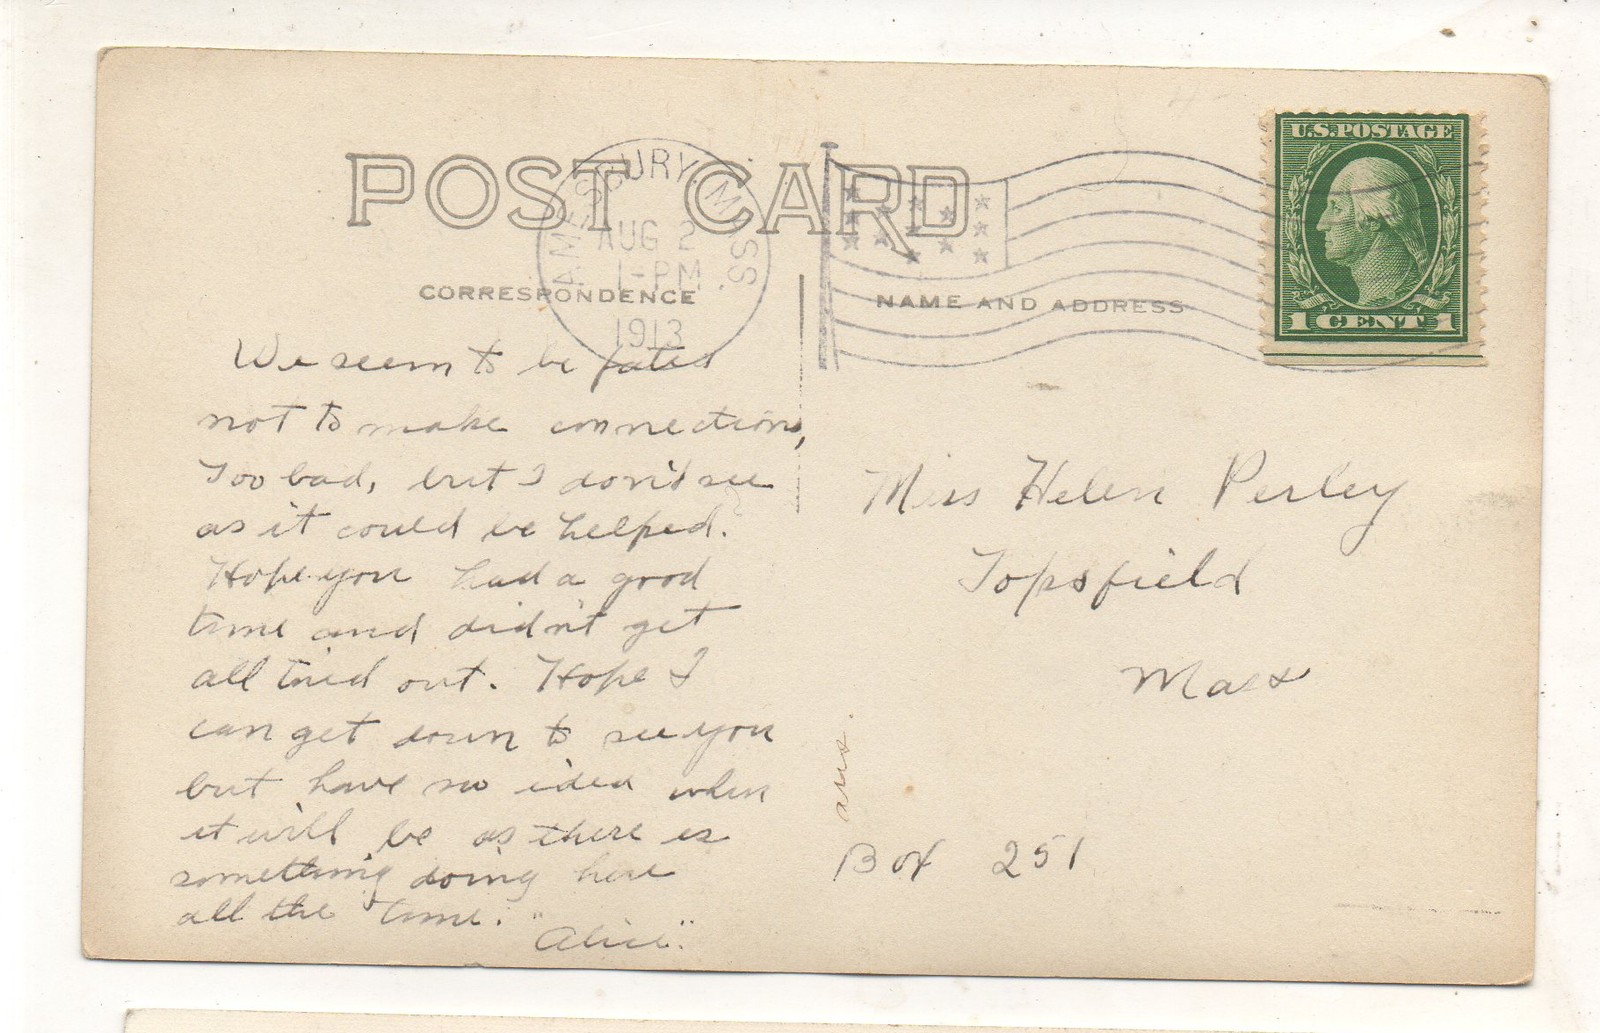 POST CARD
AMESBURY, MASS.
AUG 2
1-PM
1913
U.S. POSTAGE
1 CENT 1
CORRESPONDENCE
NAME AND ADDRESS
We seem to be fated
not to make connections,
Too bad, but I don't see
as it could be helped.
Hope you had a good
time and didn't get
all tired out. Hope I
can get down to see you
but have no idea when
it will be as there is
something doing here
all the time.
"Alice".
Miss Helen Perley
Topsfield
Mass
ans.
Box 251